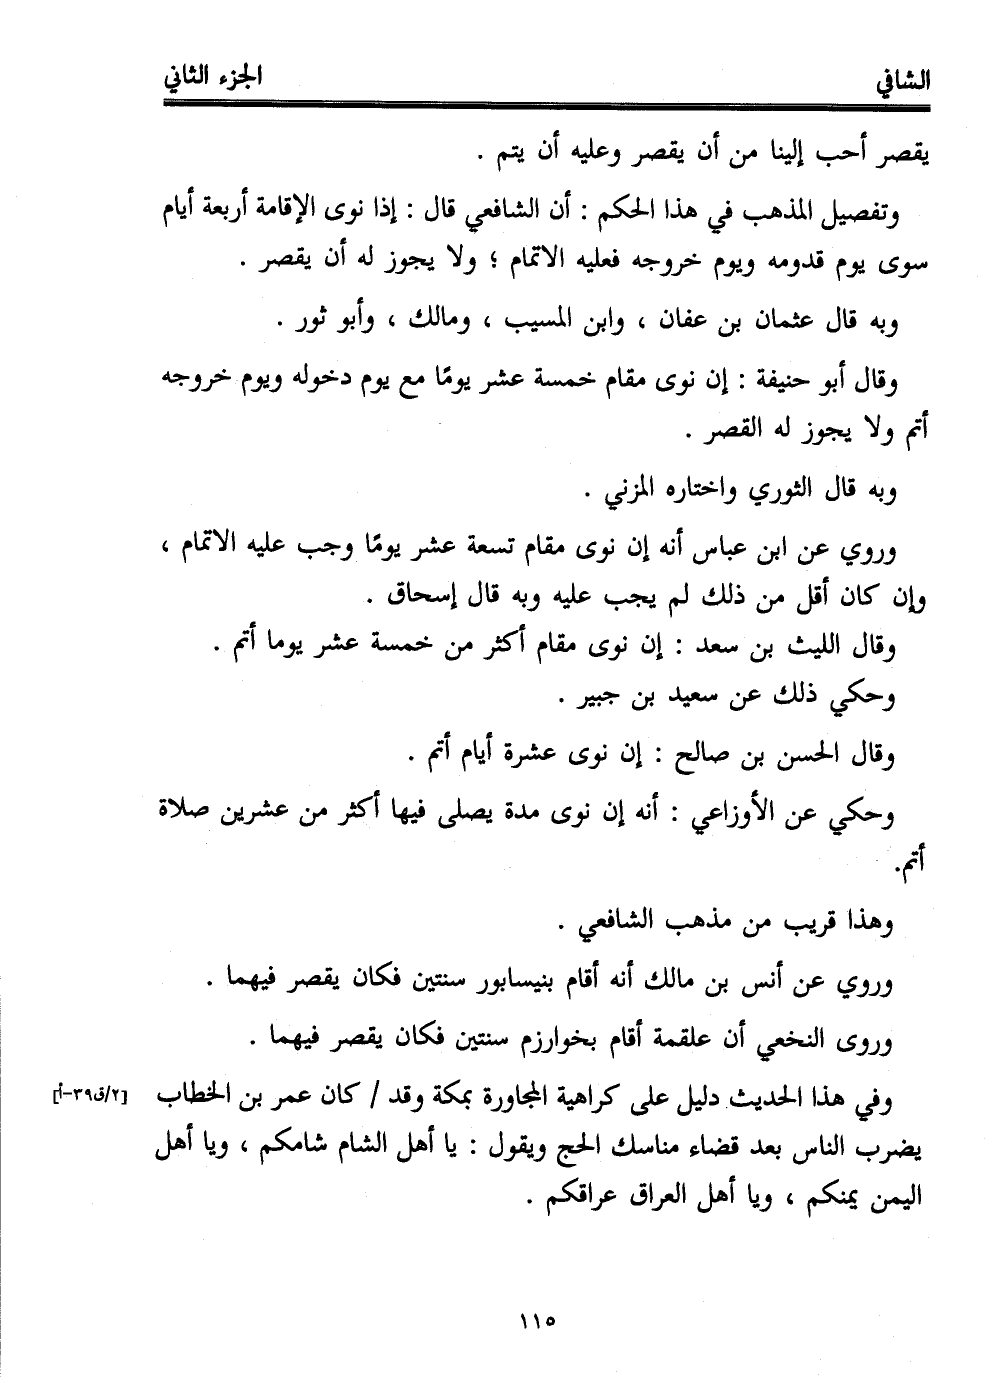 الشافي
الجزء الثاني
يقصر أحب إلينا من أن يقصر وعليه أن يتم .
وتفصيل المذهب في هذا الحكم : أن الشافعي قال : إذا نوى الإقامة أربعة أيام
سوى يوم قدومه ويوم خروجه فعليه الاتمام ؛ ولا يجوز له أن يقصر .
وبه قال عثمان بن عفان ، وابن المسيب ، ومالك ، وأبو ثور .
وقال أبو حنيفة : إن نوى مقام خمسة عشر يومًا مع يوم دخوله ويوم خروجه
أتم ولا يجوز له القصر .
وبه قال الثوري واختاره المزني .
وروي عن ابن عباس أنه إن نوى مقام تسعة عشر يومًا وجب عليه الاتمام ،
وإن كان أقل من ذلك لم يجب عليه وبه قال إسحاق .
وقال الليث بن سعد : إن نوى مقام أكثر من خمسة عشر يوما أتم .
وحكي ذلك عن سعيد بن جبير .
وقال الحسن بن صالح : إن نوى عشرة أيام أتم .
وحكي عن الأوزاعي : أنه إن نوى مدة يصلى فيها أكثر من عشرين صلاة
أتم.
وهذا قريب من مذهب الشافعي .
وروي عن أنس بن مالك أنه أقام بنيسابور سنتين فكان يقصر فيهما .
وروى النخعي أن علقمة أقام بخوارزم سنتين فكان يقصر فيهما .
وفي هذا الحديث دليل على كراهية المجاورة بمكة وقد / كان عمر بن الخطاب [٢/ق٣٩-أ]
يضرب الناس بعد قضاء مناسك الحج ويقول : يا أهل الشام شامكم ، ويا أهل
اليمن يمنكم ، ويا أهل العراق عراقكم .
١١٥